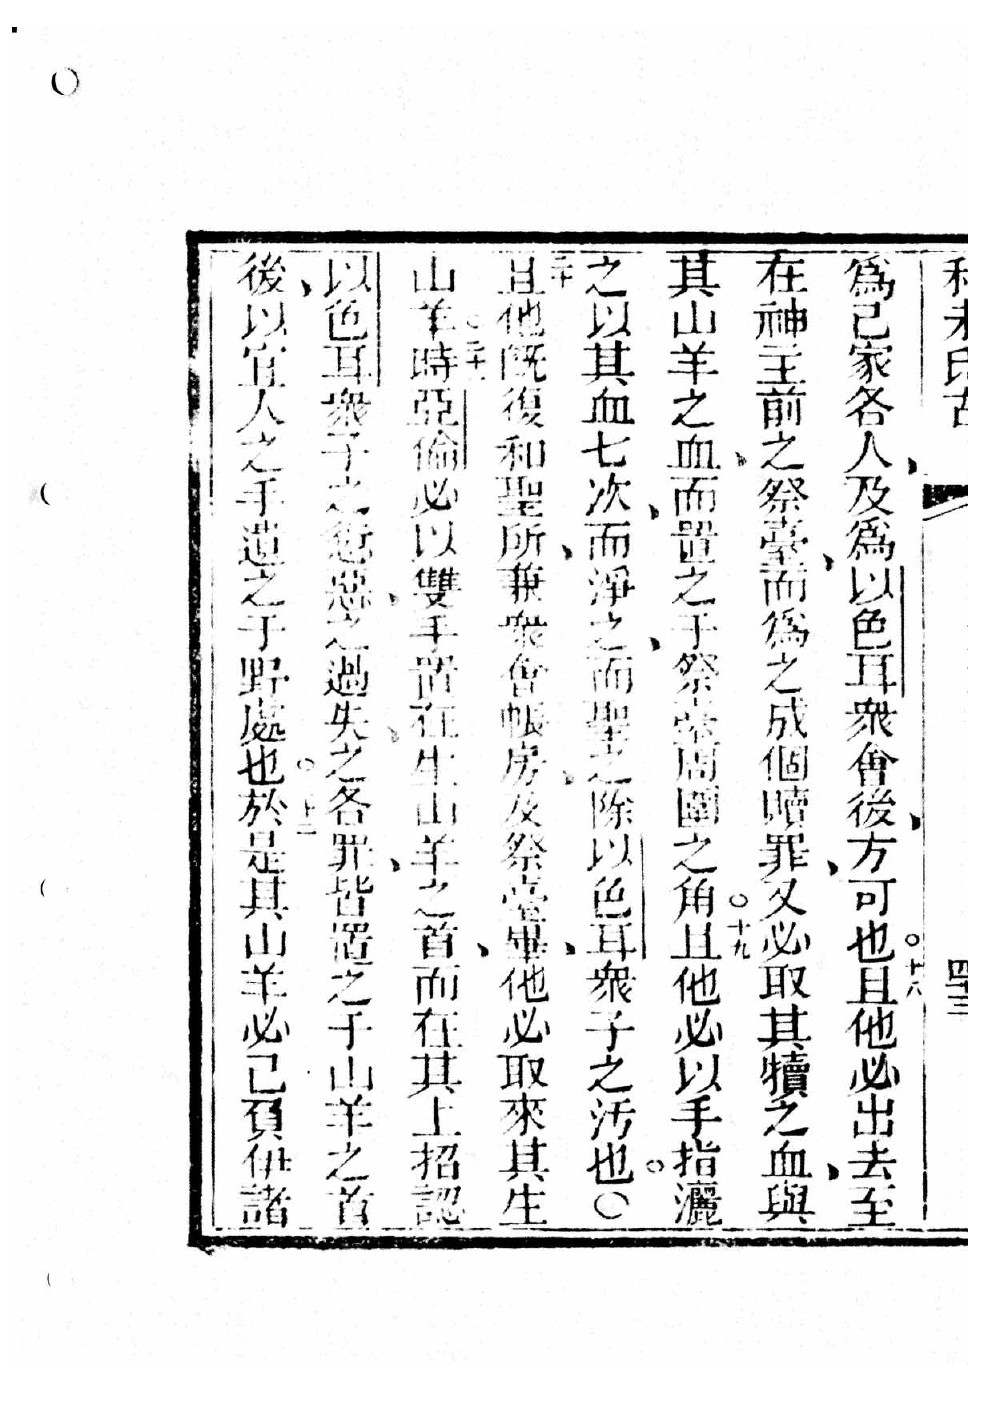 利未氏古
四十三
爲己家各人、及爲以色耳衆會後、方可也。十八且他必出去至
在神主前之祭臺、而爲之成個贖罪、又必取其犢之血、與
其山羊之血、而置之于祭臺周圍之角。十九且他必以手指灑
之以其血七次、而淨之、而聖之、除以色耳衆子之汚也。〇
二十且他旣復和聖所、兼衆會帳房、及祭臺畢、他必取來其生
山羊時。二十一亞倫必以雙手置在生山羊之首、而在其上招認
以色耳衆子之愆惡、之過失、之各罪、皆置之于山羊之首
後、以宜人之手遣之于野處也。二十二於是其山羊必己負伊諸